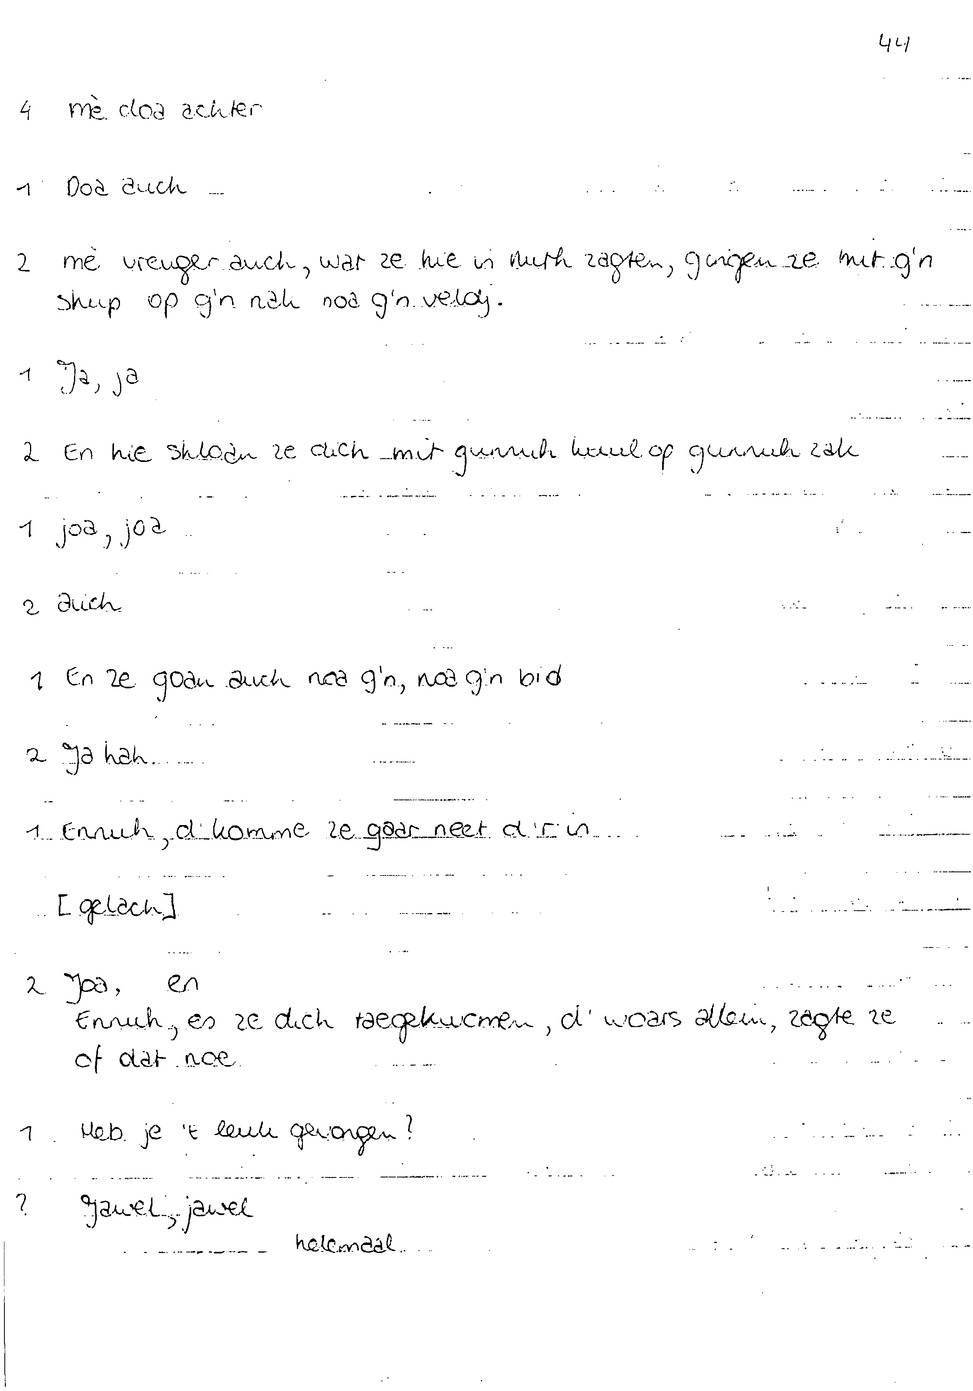 44
4 mè doa achter
1 Doa auch
2 mè vreuger auch, wat ze hie in Nuth zagten, gingen ze mit g'n
shup op g'n nak noa g'n veldj.
1 Ja, ja
2 En hie shloàn ze dich mit gunnuh op gunnuh zak
1 joa, joa
2 auch
1 En ze goan auch noa g'n, noa g'n bid
2 Ja hah.
1 Ennuh, d' komme ze gaar neet d'r in
[gelach]
2 Joa, en
Ennuh, es ze dich taegekwomen, d' woars allein, zagte ze
of dat noe
1 Heb je 't leuk gevongen?
? Jawel, jawel
helemaal